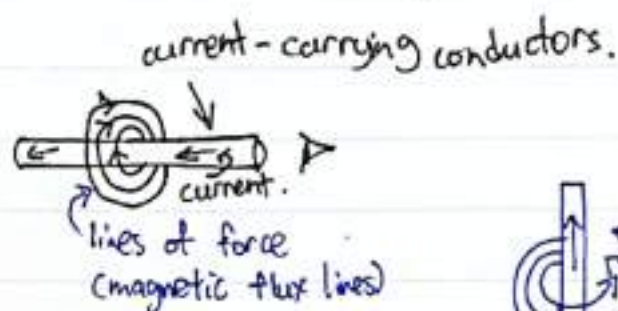 current-carrying conductors.
current.
lines of force
(magnetic flux lines)